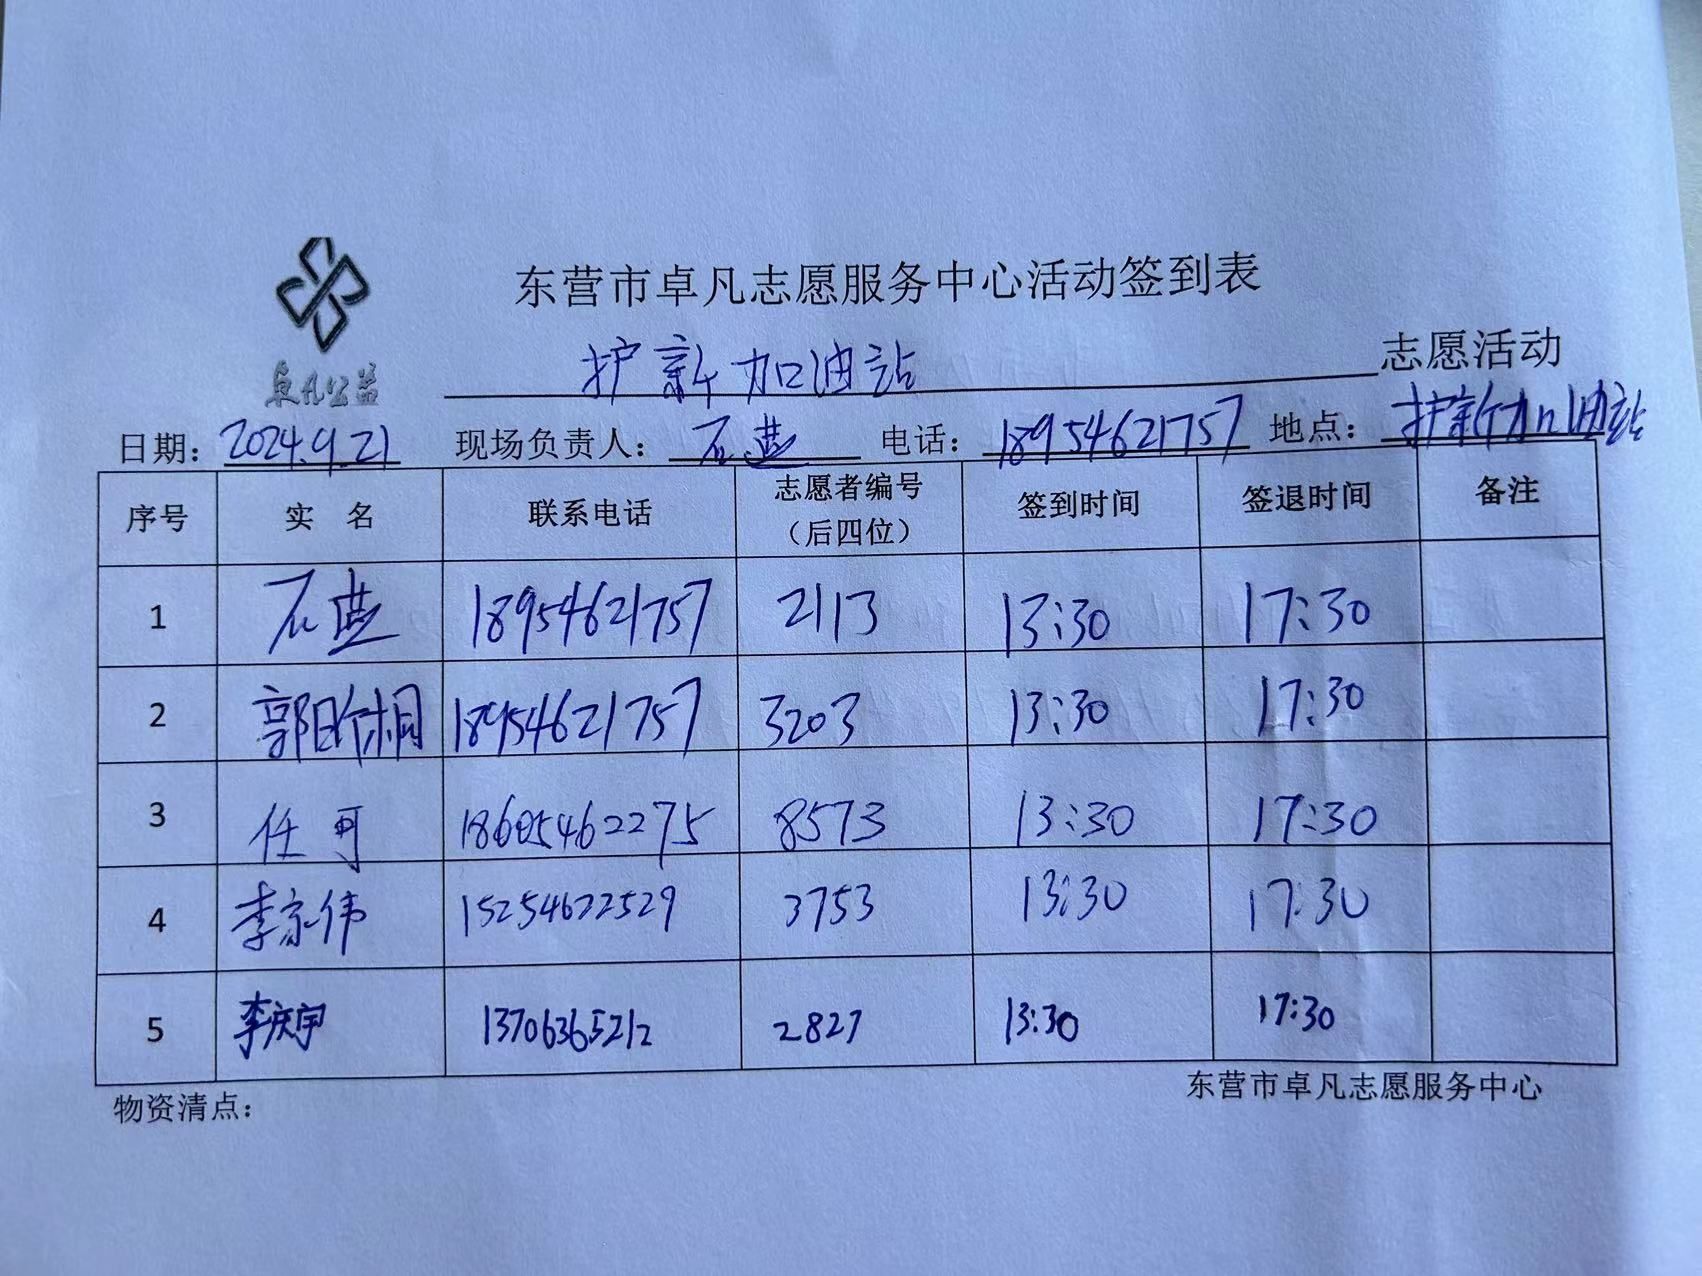 东营市卓凡志愿服务中心活动签到表
卓凡公益
护新加油站 志愿活动
日期：2024.9.21 现场负责人：石燕 电话：18954621757 地点：护新加油站
序号 实名 联系电话 志愿者编号（后四位） 签到时间 签退时间 备注
1 石燕 18954621757 2113 13:30 17:30
2 18954621757 3203 13:30 17:30
3 任可 18605462275 8573 13:30 17:30
4 李京伟 15254622529 3753 13:30 17:30
5 李庆宇 13706365212 2827 13:30 17:30
物资清点：
东营市卓凡志愿服务中心